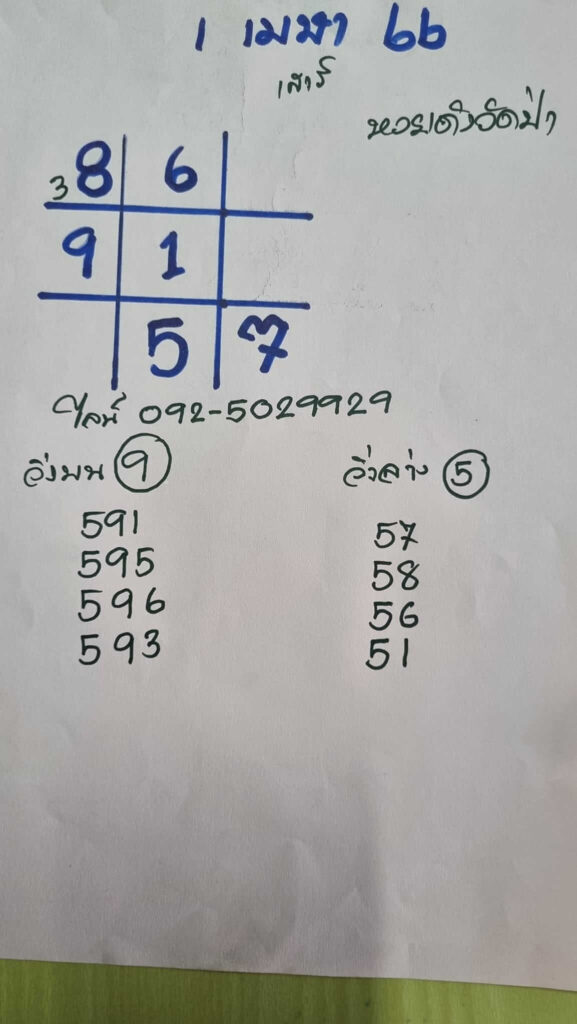 1 เมษา 66
เสาร์
หวยดังวัดป่า
3 8 6
9 1
5 7
ไลน์ 092-5029929
วิ่งบน 9
วิ่งล่าง 5
591
595
596
593
57
58
56
51